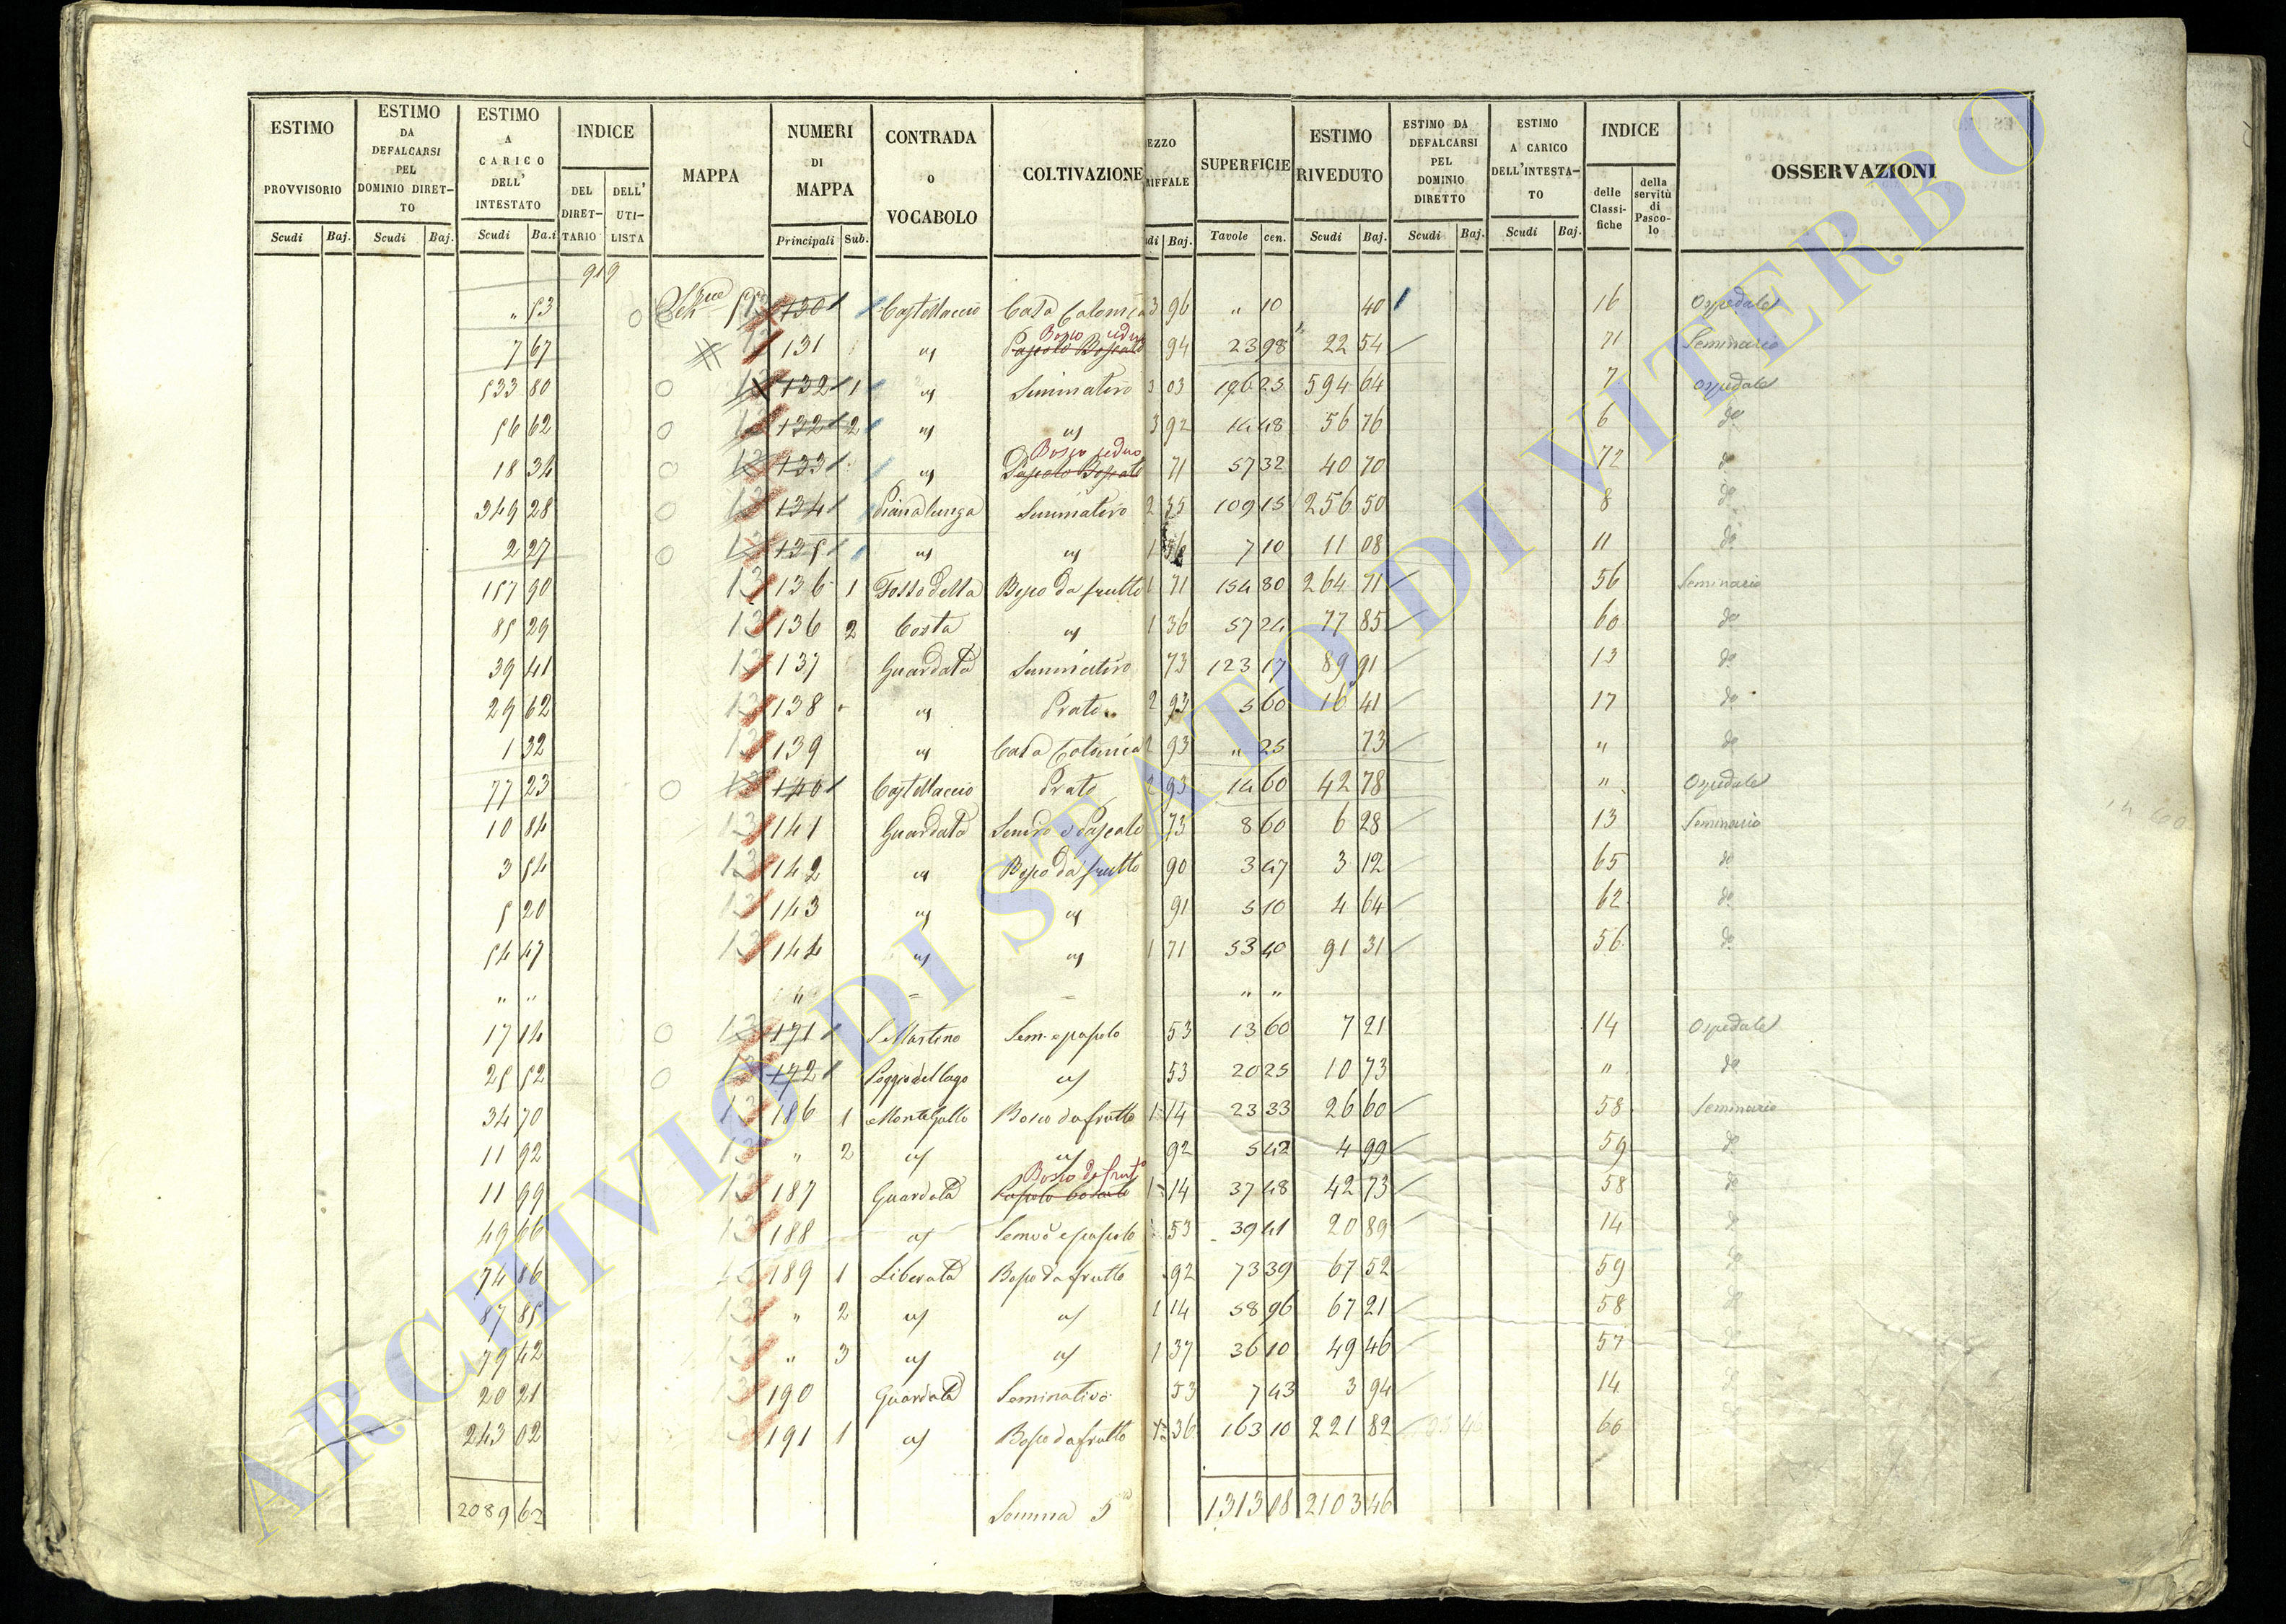 ESTIMO PROVVISORIO Scudi Baj.
ESTIMO DA DEFALCARSI PEL DOMINIO DIRET-TO Scudi Baj.
ESTIMO A CARICO DELL' INTESTATO Scudi Ba.i
INDICE DEL DIRET-TARIO DELL' UTI-LISTA
MAPPA
NUMERI DI MAPPA Principali Sub.
CONTRADA o VOCABOLO
COLTIVAZIONE
EZZO RIFFALE di Baj.
SUPERFICIE Tavole cen.
ESTIMO RIVEDUTO Scudi Baj.
ESTIMO DA DEFALCARSI PEL DOMINIO DIRETTO Scudi Baj.
ESTIMO A CARICO DELL'INTESTA-TO Scudi Baj.
INDICE delle Classi-fiche della servitù di Pasco-lo
OSSERVAZIONI
919
" 53 130 Castellaccio Casa Colonica 3 96 " 10 40 16 Ospedale
7 67 131 " Bosco ceduo Pascolo Boscato 94 23 98 22 54 71 Seminario
533 80 132 1 " Seminativo 3 03 196 23 594 64 7 Ospedale
56 62 132 2 " " 3 92 14 48 56 76 6 do
18 34 133 " Bosco ceduo Pascolo Boscato 71 57 32 40 70 72 do
349 28 134 Piana lunga Seminativo 2 35 109 15 256 50 8 do
2 27 135 " " 1 56 7 10 11 08 11 do
157 90 13 136 1 Fosso della Bosco da frutto 1 71 154 80 264 71 56 Seminario
85 29 13 136 2 Costa " 1 36 57 24 77 85 60 do
39 41 13 137 Guardata Seminativo 73 123 17 89 91 13 do
29 62 13 138 " Prato 2 93 5 60 16 41 17 do
1 32 13 139 " Casa Colonica 2 93 " 25 73 " do
77 23 13 140 Castellaccio Prato 2 93 14 60 42 78 " Ospedale
10 84 13 141 Guardata Semvo e Pascolo 73 8 60 6 28 13 Seminario
3 54 13 142 " Bosco da frutto 90 3 47 3 12 65 do
5 20 13 143 " " 91 5 10 4 64 62 do
54 47 13 144 " " 1 71 53 40 91 31 56 do
" " " = = " "
17 14 13 171 S. Martino Sem. e pascolo 53 13 60 7 21 14 Ospedale
25 52 13 172 Poggio del lago " 53 20 25 10 73 " do
34 70 13 186 1 Monte Gallo Bosco da frutto 1 14 23 33 26 60 58 Seminario
11 92 13 " 2 " " 92 5 42 4 99 59 do
11 99 13 187 Guardata Bosco da frutto Pascolo boscato 1 14 37 48 42 73 58 do
49 66 13 188 " Semvo e pascolo 53 39 41 20 89 14 do
74 86 13 189 1 Liberata Bosco da frutto 92 73 39 67 52 59 do
87 85 13 " 2 " " 1 14 58 96 67 21 58 do
79 42 13 " 3 " " 1 37 36 10 49 46 57 do
20 21 13 190 Guardata Seminativo 53 7 43 3 94 14 do
243 02 191 1 " Bosco da frutto 1 36 163 10 221 82 66
2089 62 Somma 5 1313 08 2103 46
ARCHIVIO DI STATO DI VITERBO